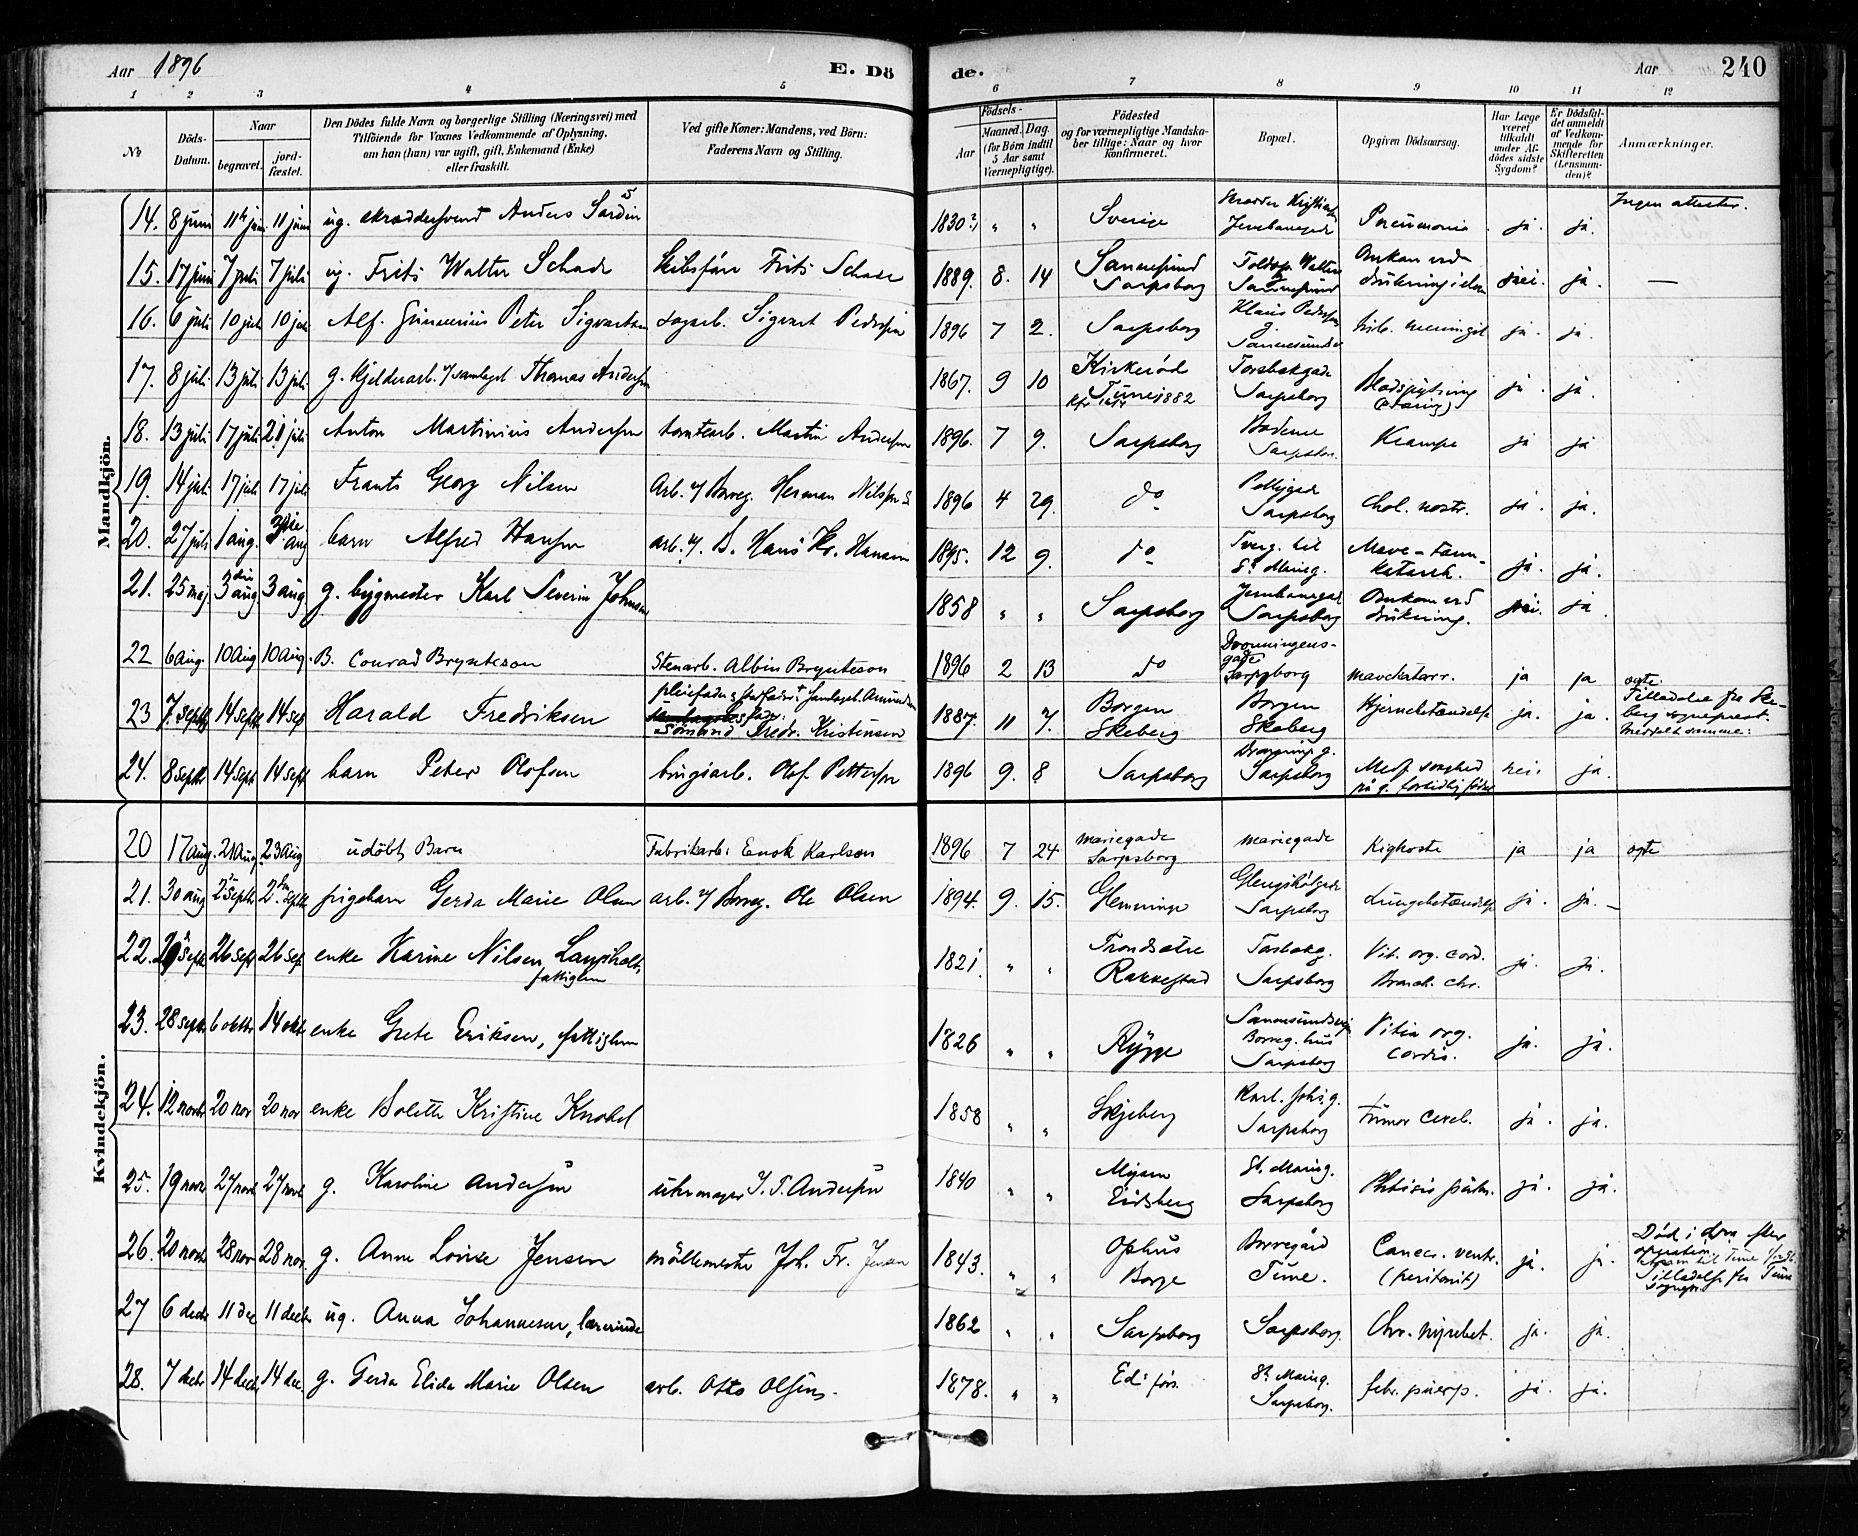 Aar 1896 E. Dö de. Aar 240
1 2 3 4 5 6 7 8 9 10 11 12
№ Döds-Datum. Naar begravet. jord-fæstet. Den Dödes fulde Navn og borgerlige Stilling (Næringsvei) med Tilföiende for Voxnes Vedkommende af Oplysning, om han (hun) var ugift, gift, Enkemand (Enke) eller fraskilt. Ved gifte Koner: Mandens, ved Börn: Faderens Navn og Stilling. Födsels- Aar Maaned. Dag. (for Börn indtil 5 Aar samt Værnepligtige). Födested og for værnepligtige Mandskaber tillige: Naar og hvor konfirmeret. Bopæl. Opgiven Dödsaarsag. Har Læge været tilkaldt under Afdödes sidste Sygdom? Er Dödsfaldet anmeldt af Vedkommende for Skifteretten (Lensmanden)? Anmærkninger.
Mandkjön.
14. 8 juni 11 juni 11 juni ug. skræddersvend Anders 1830? " " Sverige Jernbanegade Pneumonia ja. ja. Ingen attester.
15. 17 juni 7 juli 7 juli ug. Frits Walter Schade Skibsförer Frits Schade 1889. 8. 14 Sannesund Sarpsborg Sannesund Omkom ved drukning i elven nei. ja. —
16. 6 juli 10 juli 10 juli Alf. Gunnerius Peter Sigvartsen Sigvart Pedersen 1896 7 2. Sarpsborg Sannesund ja. ja.
17. 8 juli 13 juli 13 juli g. kjelderarb. v/ samlaget Thomas Andersen 1867. 9 10 Kirkeröd Tune 1882 Torsbækgade Sarpsborg Blodspytning ja. ja.
18. 13 juli 17 juli 21 juli Anton Martinius Andersen tomtearb. Martin Andersen 1896. 7 9. Sarpsborg Sarpsbor. Krampe ja ja
19. 14 juli 17 juli 17 juli Frants Georg Nilsen Arb. v/ Borreg. Herman Nilsen 1896 4 29. do Sarpsborg Chol. nostr. ja. ja.
20. 27 juli 1 aug. aug barn Alfred Hansen arb. v. B. Hans Kr. Hansen 1895. 12 9. do Tverg. til St. Marieg. Mave-tarmkatarrh. ja. ja.
21. 25 maj 3 aug 3 aug g. bygmester Karl Severin Johnsen 1858 " " Sarpsborg Jernbanegad Sarpsborg Omkom ved drukning. nei. ja
22 6 Aug. 10 Aug 10 Aug. B. Conrad Brynteson Stenarb. Albin Brynteson 1896 2 13 do Dronningensgade Sarpsborg mavekatarr. ja ja ægte.
23 7. septbr 14 septb 14 sep Harald Fredriksen Fredr. Kristensen 1887. 11 7. Borgen Skeberg Borgen Skeberg Hjernebetændelse ja. ja. Tilladelse fra Skeberg sogneprest.
24. 8 septb 14 sept 14 sept barn Peter Olofsen brugsarb. Olof Pettersen 1896 9. 8 Sarpsborg Dronning g. Sarpsborg Medf. svaghed på g. fortidlig födsel nei. ja.
Kvindekjön.
20 17 aug. 21 Aug. 23 aug udöbt Barn Fabrikarb. Enok Karlson 1896 7 24 mariegade Sarpsborg mariegade Kighoste ja ja ægte
21. 30 aug 2 septb 2. septb pigebarn Gerda Marie Olsen arb. v/ Borreg. Ole Olsen 1894. 9. 15. Glemminge Sarpsborg Lungebetændelse ja. ja. —
22. septb 26 sept 26 sep. enke Karine Nilsen Langholt, fattiglem 1821. " " Rakkestad Torsbækg. Sarpsborg Vit. org. cord. Bronch. chr. ja. ja.
23. 28 septb 6 oktbr 14 okt. enke Grete Eriksen, fattiglem 1826 " " Rygge Borreg. hus Sarpsborg Vitia org. cordis. ja. ja.
24. 12 novbr 20 nov 20 nov enke Bolette Kristine 1858 " " Skjeberg Karl. Johs. g. Sarpsborg Tumor cereb. ja. ja.
25. 19 novbr 27 novb 27 novb g. Karoline Andersen uhrmager J. P. Andersen 1840 " " Mysen Eidsberg St. Marieg. Sarpsborg Phthisis pulm. ja. ja.
26. 20 novbr 28 nov 28 nov. g. Anne Lovise Jensen möllemester Joh. Fr. Jensen 1843. " " Ophus Borge Borregård Tune. Cancr. ventr. (peritonit) ja. ja. Död i operation Tilladelse fra Tune sogneprest
27 6 decbr 11 dec 11 decbr ug. Anna Johannesen, lærerinde 1862 " " Sarpsborg Sarpsborg. Chr. nyrebet. ja. ja.
28. 7 decbr 14 decbr 14 dec. g. Gerda Elida Marie Olsen arb. Otto Olsens. 1878. " " St. Marieg. Sarpsborg. febr. puerp. ja. ja.